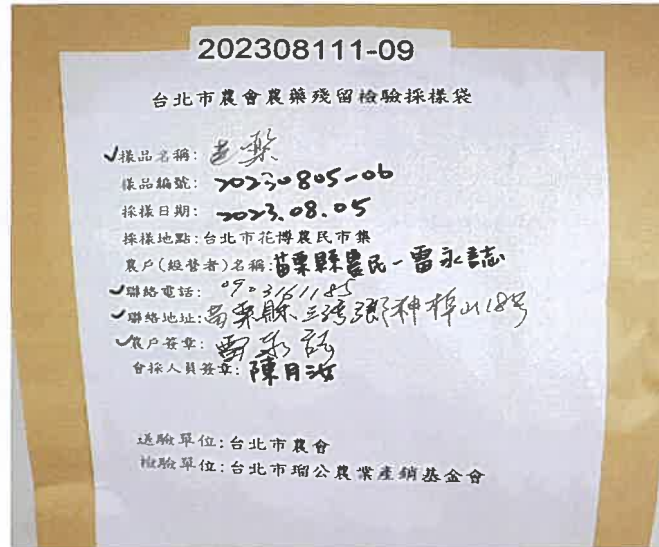 202308111-09
台北市農會農藥殘留檢驗採樣袋
✓樣品名稱:
樣品編號: 20230805-06
採樣日期: 2023.08.05
採樣地點:台北市花博農民市集
農戶(經營者)名稱:苗栗縣農民-雷永誌
✓聯絡電話: 0903161185
✓聯絡地址:苗栗縣三灣鄉神棹山18号
✓農戶簽章: 雷永誌
會採人員簽章: 陳月汝
送驗單位:台北市農會
檢驗單位:台北市瑠公農業產銷基金會